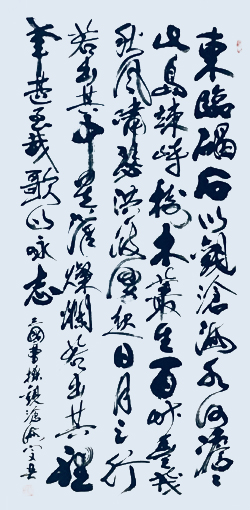 東臨碣石以觀滄海水何澹々
山島竦峙樹木叢生百草豐茂
秋風蕭瑟洪波湧起日月之行
若出其中星漢燦爛若出其裡
幸甚至哉歌以咏志
三國曹操觀滄海